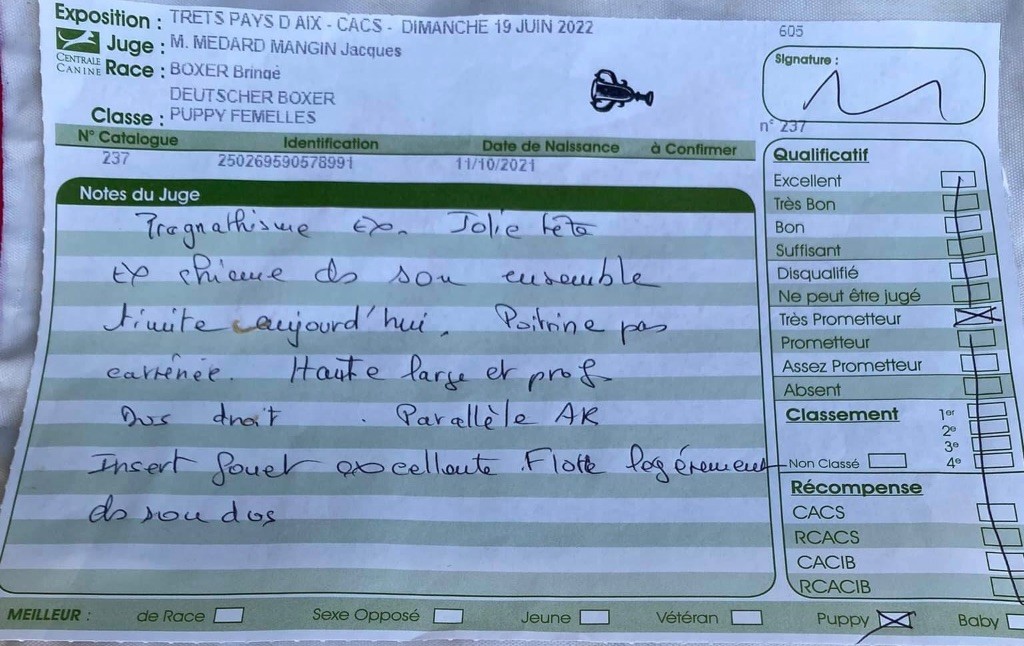 Exposition : TRETS PAYS D AIX - CACS - DIMANCHE 19 JUIN 2022
605
CENTRALE CANINE
Juge : M. MEDARD MANGIN Jacques
Race : BOXER Bringé
DEUTSCHER BOXER
Classe : PUPPY FEMELLES
Signature :
n° 237
N° Catalogue Identification Date de Naissance à Confirmer
237 250269590578991 11/10/2021
Notes du Juge
Prognathisme Ex. Jolie tête
Ex ds son ensemble
aujourd'hui. Poitrine pas
carènée. Haute large et prof.
Dos droit. Parallèle AR
Insert fouet excellente. Flotte légèrement
ds son dos
Qualificatif
Excellent
Très Bon
Bon
Suffisant
Disqualifié
Ne peut être jugé
Très Prometteur
Prometteur
Assez Prometteur
Absent
Classement 1er
2e
3e
Non Classé 4e
Récompense
CACS
RCACS
CACIB
RCACIB
MEILLEUR : de Race Sexe Opposé Jeune Vétéran Puppy Baby